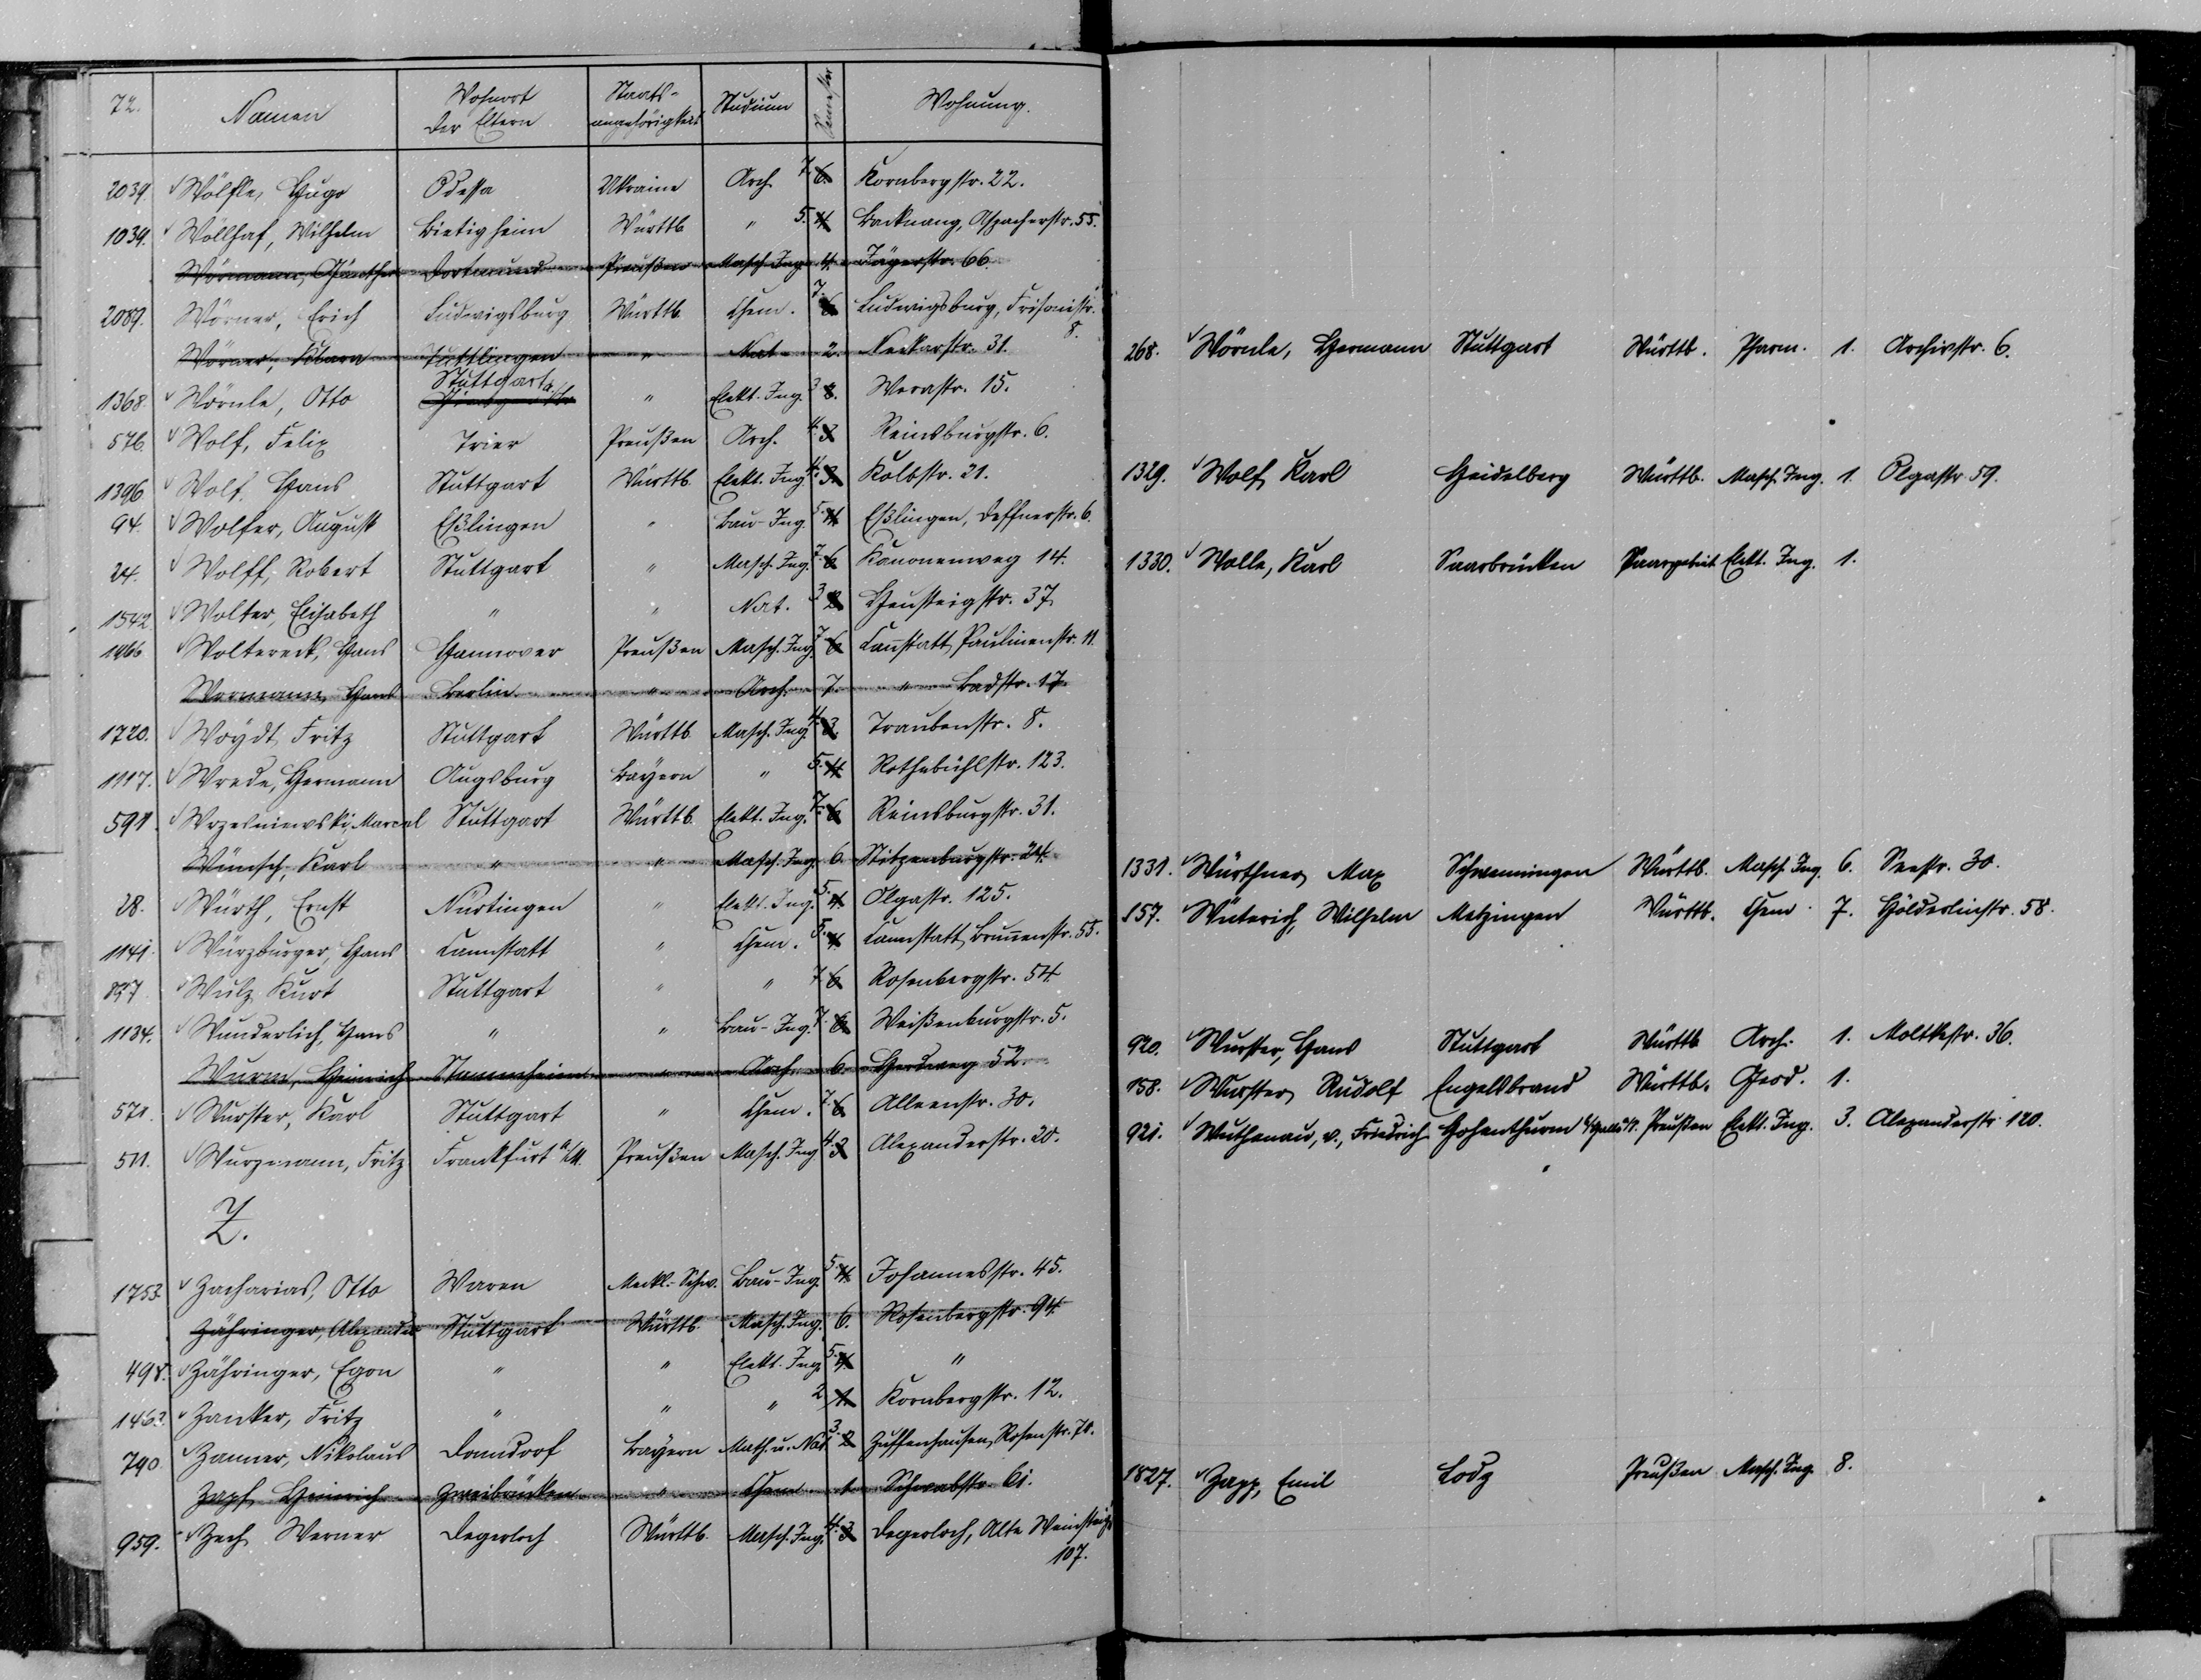 72. Namen Wohnort der Eltern Staats-angehörigkeit Studium Semester Wohnung.
2039. Wölfle, Hugo Odessa Ukraine Arch 7. 6. Kornbergstr. 22.
1039. Wöllhaf, Wilhelm Bietigheim Württb. " 5. 4. Backnang, Aspacherstr. 55.
Wörmann, Günther Dortmund Preußen Masch. Ing. 4. Jägerstr. 66.
2089. Wörner, Erich Ludwigsburg Württb. Chem. 7. 6. Ludwigsburg, Frisonistr. 8.
Wörner, Klara Tuttlingen " Nat. 2. Neckarstr. 31.
1368. Wörnle, Otto Stuttgart " Elekt. Ing. 3 Werastr. 15.
576. Wolf, Felix Trier Preußen Arch. 4. 3. Reinsburgstr. 6.
1396 Wolf, Hans Stuttgart Württb. Elekt. Ing. 4. 3. Kolbstr. 21.
94. Wolfer, August Eßlingen " Bau-Ing. 5. 4. Eßlingen, Deffnerstr. 6.
24. Wolff, Robert Stuttgart " Masch. Ing. 7. 6. Kanonenweg 14.
1542 Wolter, Elisabeth " " Nat. 3 2. Heusteigstr. 37.
1466 Woltereck, Hans Hannover Preußen Masch. Ing. 7. 6. Cannstatt, Paulinenstr. 11.
Wormann, Hans Berlin " Arch. 7. " Badstr. 17
1720. Woydt, Fritz Stuttgart Württb. Masch. Ing. 4. 3. Traubenstr. 8.
1117. Wrede, Hermann Augsburg Bayern " 5. 4. Rothebühlstr. 123.
591. Wrzesniewski, Marcel Stuttgart Württb. Elekt. Ing. 7. 6. Reinsburgstr. 31.
Wünsch, Karl " " Masch. Ing. 6. Stitzenburgstr. 24.
28. Würth, Ernst Nürtingen " Elekt. Ing. 5. 4. Olgastr. 125.
1141. Würzburger, Hans Cannstatt " Chem. 5. 4. Cannstatt, Brunnenstr. 55.
897 Wulz, Kurt Stuttgart " " 7. 6. Rosenbergstr. 54.
1134. Wunderlich, Hans " " Bau-Ing. 7. 6. Weißenburgstr. 5.
Wurm, Heinrich Stammheim " Arch. 6. Herdweg 52.
571. Wurster, Karl Stuttgart " Chem. 7. 6. Alleenstr. 30.
511. Wurzmann, Fritz Frankfurt a/M. Preußen Masch. Ing. 4. 3. Alexanderstr. 20.
Z.
1753. Zacharias, Otto Waren Meckl.-Schw. Bau-Ing. 5. 4. Johannesstr. 45.
Zähringer, Alexander Stuttgart Württb. Masch. Ing. 6. Rosenbergstr. 94.
498. Zähringer, Egon " " Elekt. Ing. 5. 4. "
1463. Zanker, Fritz " " " 2. 1. Kornbergstr. 12.
790. Zanner, Nikolaus Donndorf Bayern Math. u. Nat 3. 2. Zuffenhausen, Rosenstr. 70.
Zapf, Heinrich Zweibrücken " Chem. 1. Schwabstr. 61.
959. Zech, Werner Degerloch Württb. Masch. Ing. 4. 3. Degerloch, Alte Weinsteige 107.
268. Wörnle, Hermann Stuttgart Württb. Pharm. 1. Archivstr. 6.
1329. Wolf, Karl Heidelberg Württb. Masch. Ing. 1. Olgastr. 59.
1330. Wolle, Karl Saarbrücken Saargebiet Elekt. Ing. 1.
1331. Würthner, Max Schwenningen Württb. Masch. Ing. 6. Seestr. 30.
157. Wüterich, Wilhelm Metzingen Württb. Chem. 7. Hölderlinstr. 58.
920. Wurster, Hans Stuttgart Württb. Arch. 1. Moltkestr. 36.
158. Wurster, Rudolf Engelsbrand Württb. Geod. 1.
921. Wuthenau, v., Friedrich Hohenthurm Preußen Elekt. Ing. 3. Alexanderstr. 120.
1827. Zapp, Emil Lodz Preußen Masch. Ing. 8.